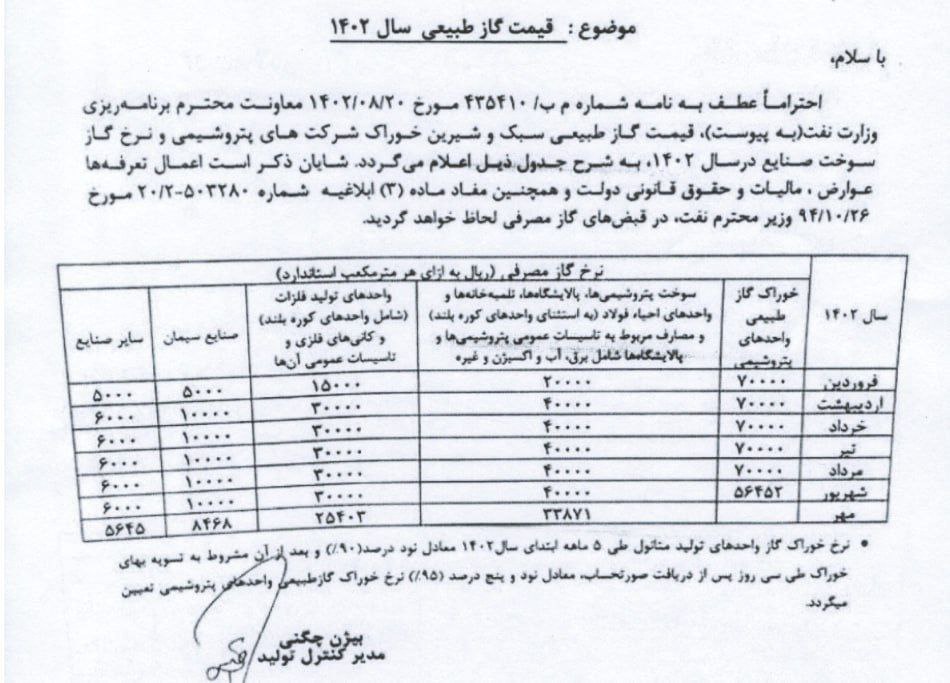 موضوع : قیمت گاز طبیعی سال ۱۴۰۲
با سلام،
احتراماً عطف به نامه شماره م ب/ ۴۳۵۴۱۰ مورخ ۱۴۰۲/۰۸/۲۰ معاونت محترم برنامه‌ریزی
وزارت نفت(به پیوست)، قیمت گاز طبیعی سبک و شیرین خوراک شرکت های پتروشیمی و نرخ گاز
سوخت صنایع درسال ۱۴۰۲، به شرح جدول ذیل اعلام می‌گردد. شایان ذکر است اعمال تعرفه‌ها
عوارض ، مالیات و حقوق قانونی دولت و همچنین مفاد ماده (۳) ابلاغیه شماره ۵۰۳۲۸۰-۲۰/۲ مورخ
۹۴/۱۰/۲۶ وزیر محترم نفت، در قبض‌های گاز مصرفی لحاظ خواهد گردید.
نرخ گاز مصرفی (ریال به ازای هر مترمکعب استاندارد)
سال ۱۴۰۲
خوراک گاز
طبیعی
واحدهای
پتروشیمی
سوخت پتروشیمی‌ها، پالایشگاه‌ها، تلمبه‌خانه‌ها و
واحدهای احیاء فولاد (به استثنای واحدهای کوره بلند)
و مصارف مربوط به تاسیسات عمومی پتروشیمی‌ها و
پالایشگاه‌ها شامل برق، آب و اکسیژن و غیره
واحدهای تولید فلزات
(شامل واحدهای کوره بلند)
و کانی‌های فلزی و
تاسیسات عمومی آن‌ها
صنایع سیمان
سایر صنایع
فروردین ۷۰۰۰۰ ۲۰۰۰۰ ۱۵۰۰۰ ۵۰۰۰ ۵۰۰۰
اردیبهشت ۷۰۰۰۰ ۴۰۰۰۰ ۳۰۰۰۰ ۱۰۰۰۰ ۶۰۰۰
خرداد ۷۰۰۰۰ ۴۰۰۰۰ ۳۰۰۰۰ ۱۰۰۰۰ ۶۰۰۰
تیر ۷۰۰۰۰ ۴۰۰۰۰ ۳۰۰۰۰ ۱۰۰۰۰ ۶۰۰۰
مرداد ۷۰۰۰۰ ۴۰۰۰۰ ۳۰۰۰۰ ۱۰۰۰۰ ۶۰۰۰
شهریور ۵۶۴۵۲ ۴۰۰۰۰ ۳۰۰۰۰ ۱۰۰۰۰ ۶۰۰۰
مهر ۳۳۸۷۱ ۲۵۴۰۳ ۸۴۶۸ ۵۶۴۵
• نرخ خوراک گاز واحدهای تولید متانول طی ۵ ماهه ابتدای سال۱۴۰۲ معادل نود درصد(۹۰٪) و بعد از آن مشروط به تسویه بهای
خوراک طی سی روز پس از دریافت صورتحساب، معادل نود و پنج درصد (۹۵٪) نرخ خوراک گازطبیعی واحدهای پتروشیمی تعیین
میگردد.
بیژن چگنی
مدیر کنترل تولید